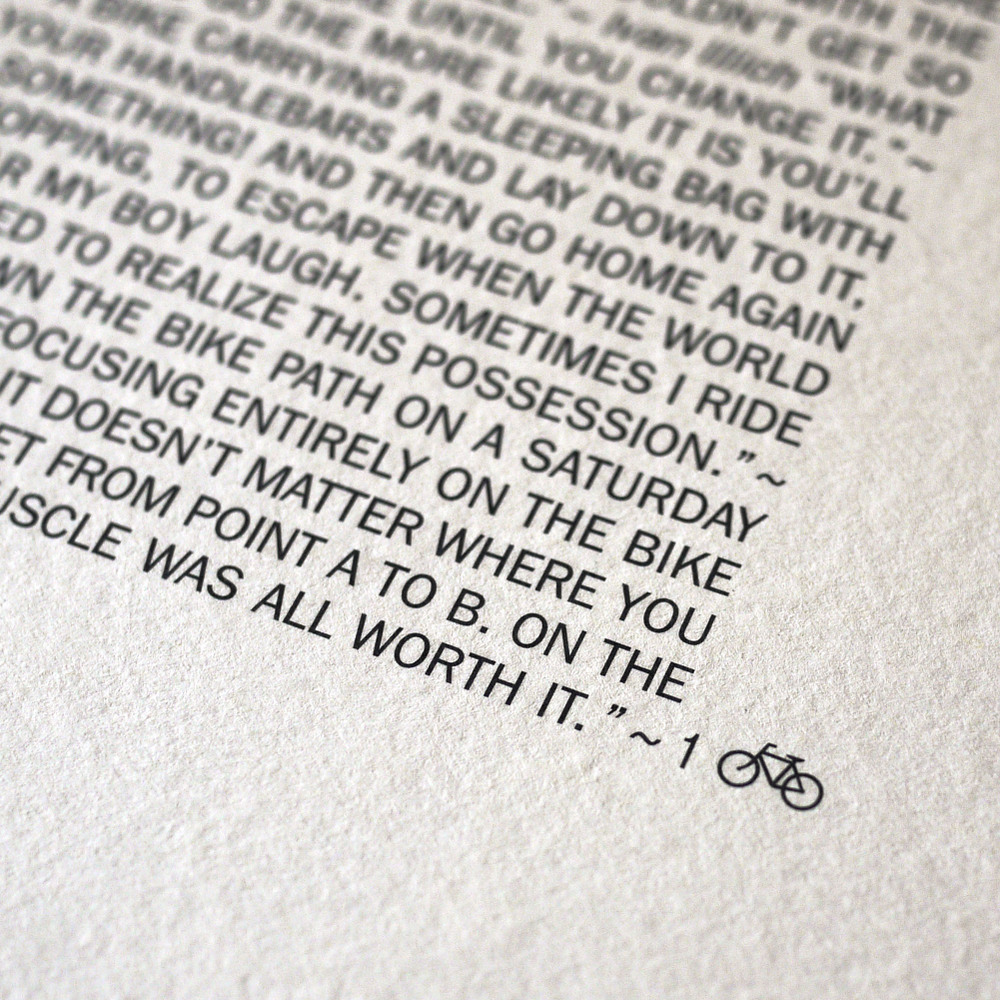 WITH THE
GET SO
~ Ivan Illich “WHAT
UNTIL YOU CHANGE IT.”~
GO THE MORE LIKELY IT IS YOU'LL
A BIKE CARRYING A SLEEPING BAG WITH
YOUR HANDLEBARS AND LAY DOWN TO IT,
SOMETHING! AND THEN GO HOME AGAIN
OPPING, TO ESCAPE WHEN THE WORLD
R MY BOY LAUGH. SOMETIMES I RIDE
ED TO REALIZE THIS POSSESSION.”~
WN THE BIKE PATH ON A SATURDAY
FOCUSING ENTIRELY ON THE BIKE
IT DOESN'T MATTER WHERE YOU
ET FROM POINT A TO B. ON THE
USCLE WAS ALL WORTH IT.”~ 1